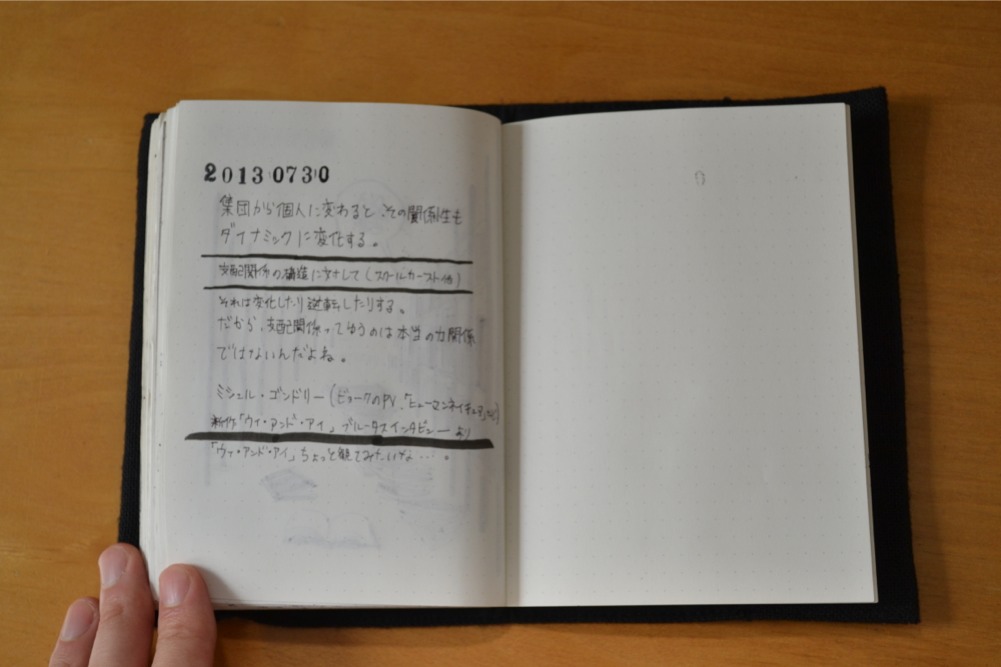 20130730
集団から個人に変わると、その関係性も
ダイナミックに変化する。
支配関係の構造に対して(スクールカースト他)
それは変化したり逆転したりする。
だから、支配関係ってゆうのは本当の力関係
ではないんだよね。
ミシェル・ゴンドリー(ビョークのPV、「ヒューマンネイチュア」
新作「ウィ・アンド・アイ」ブルータスインタビューより
「ウィ・アンド・アイ」ちょっと観てみたいかな…。